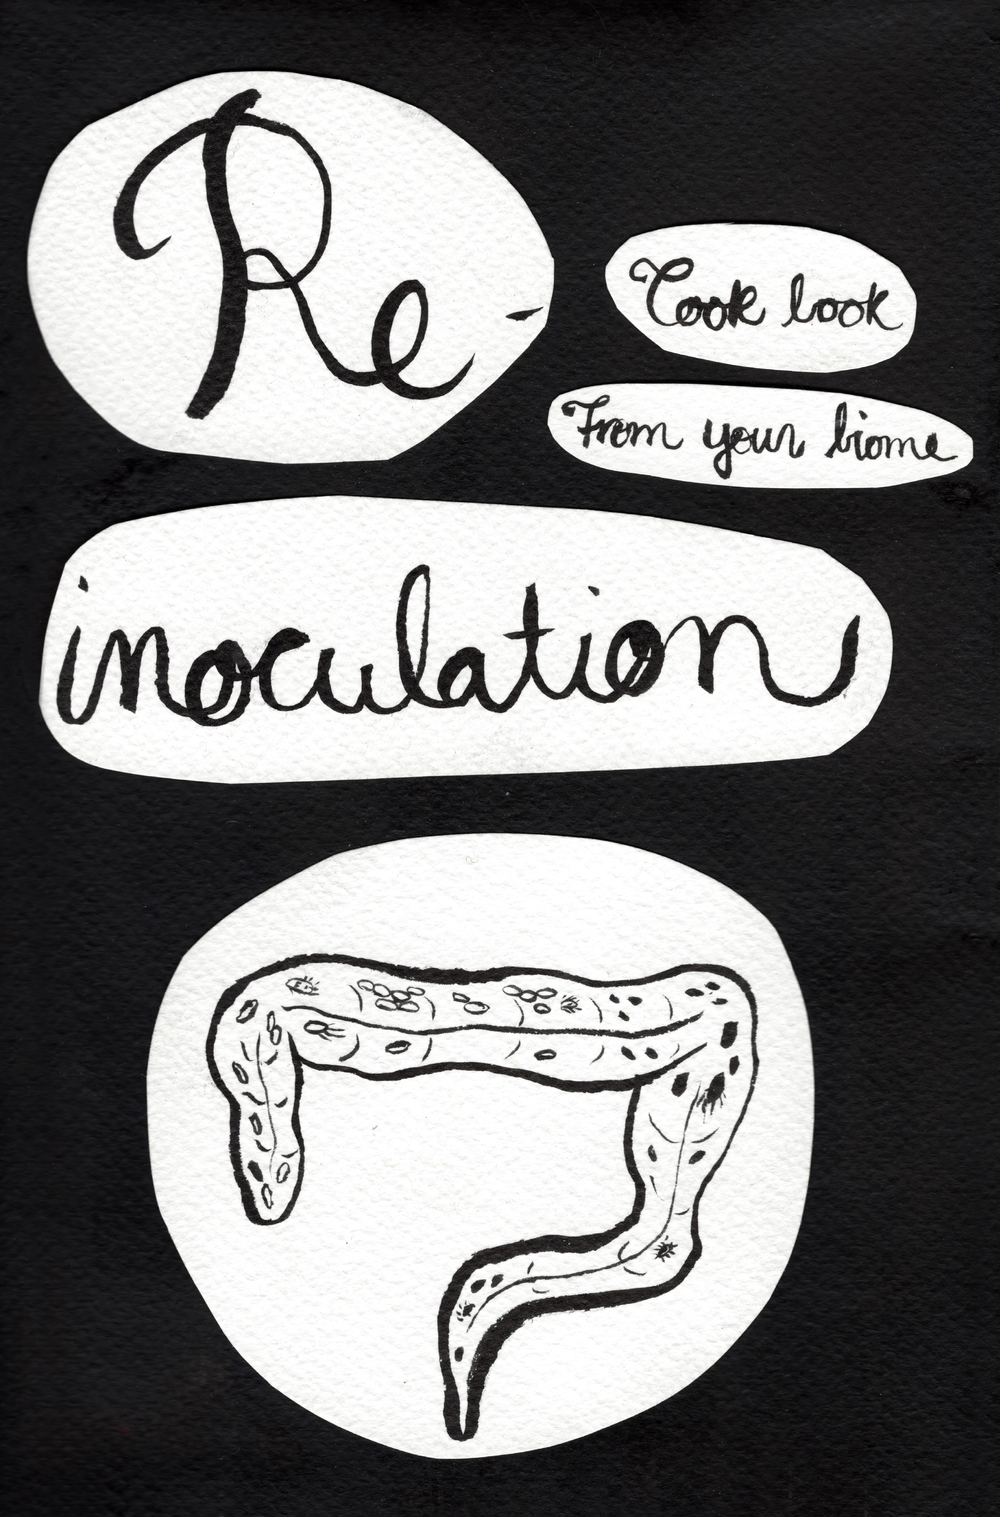 Re-
Cook book
From your biome
inoculation